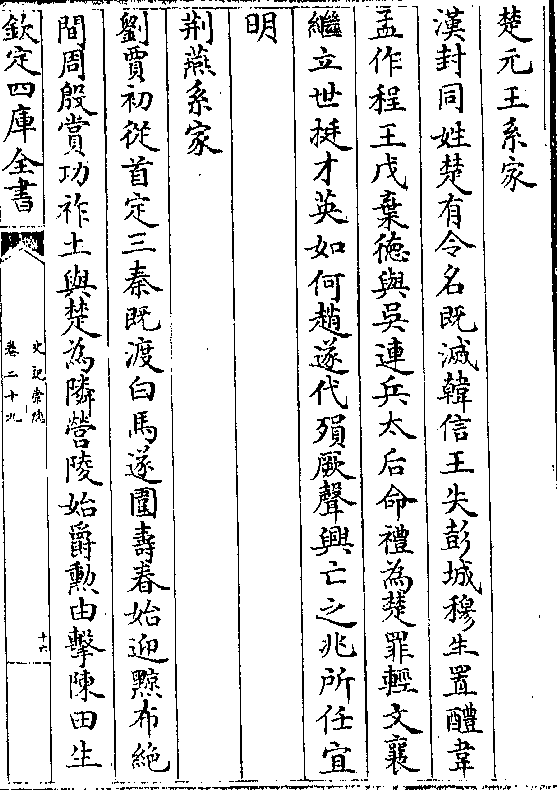 楚元王系家
漢封同姓楚有令名既滅韓信王失彭城穆生置醴韋
孟作程王戊棄徳與吳連兵太后命禮為楚罪輕文襄
繼立世挺才英如何趙遂代殞厥聲興亡之兆所任宜
明
荆燕系家
劉賈初從首定三秦既渡白馬遂圍壽春始迎黥布絶
間周殷賞功祚土與楚為隣營陵始爵勲由擊陳田生
欽定四庫全書
史記索隱
卷二十九
十六